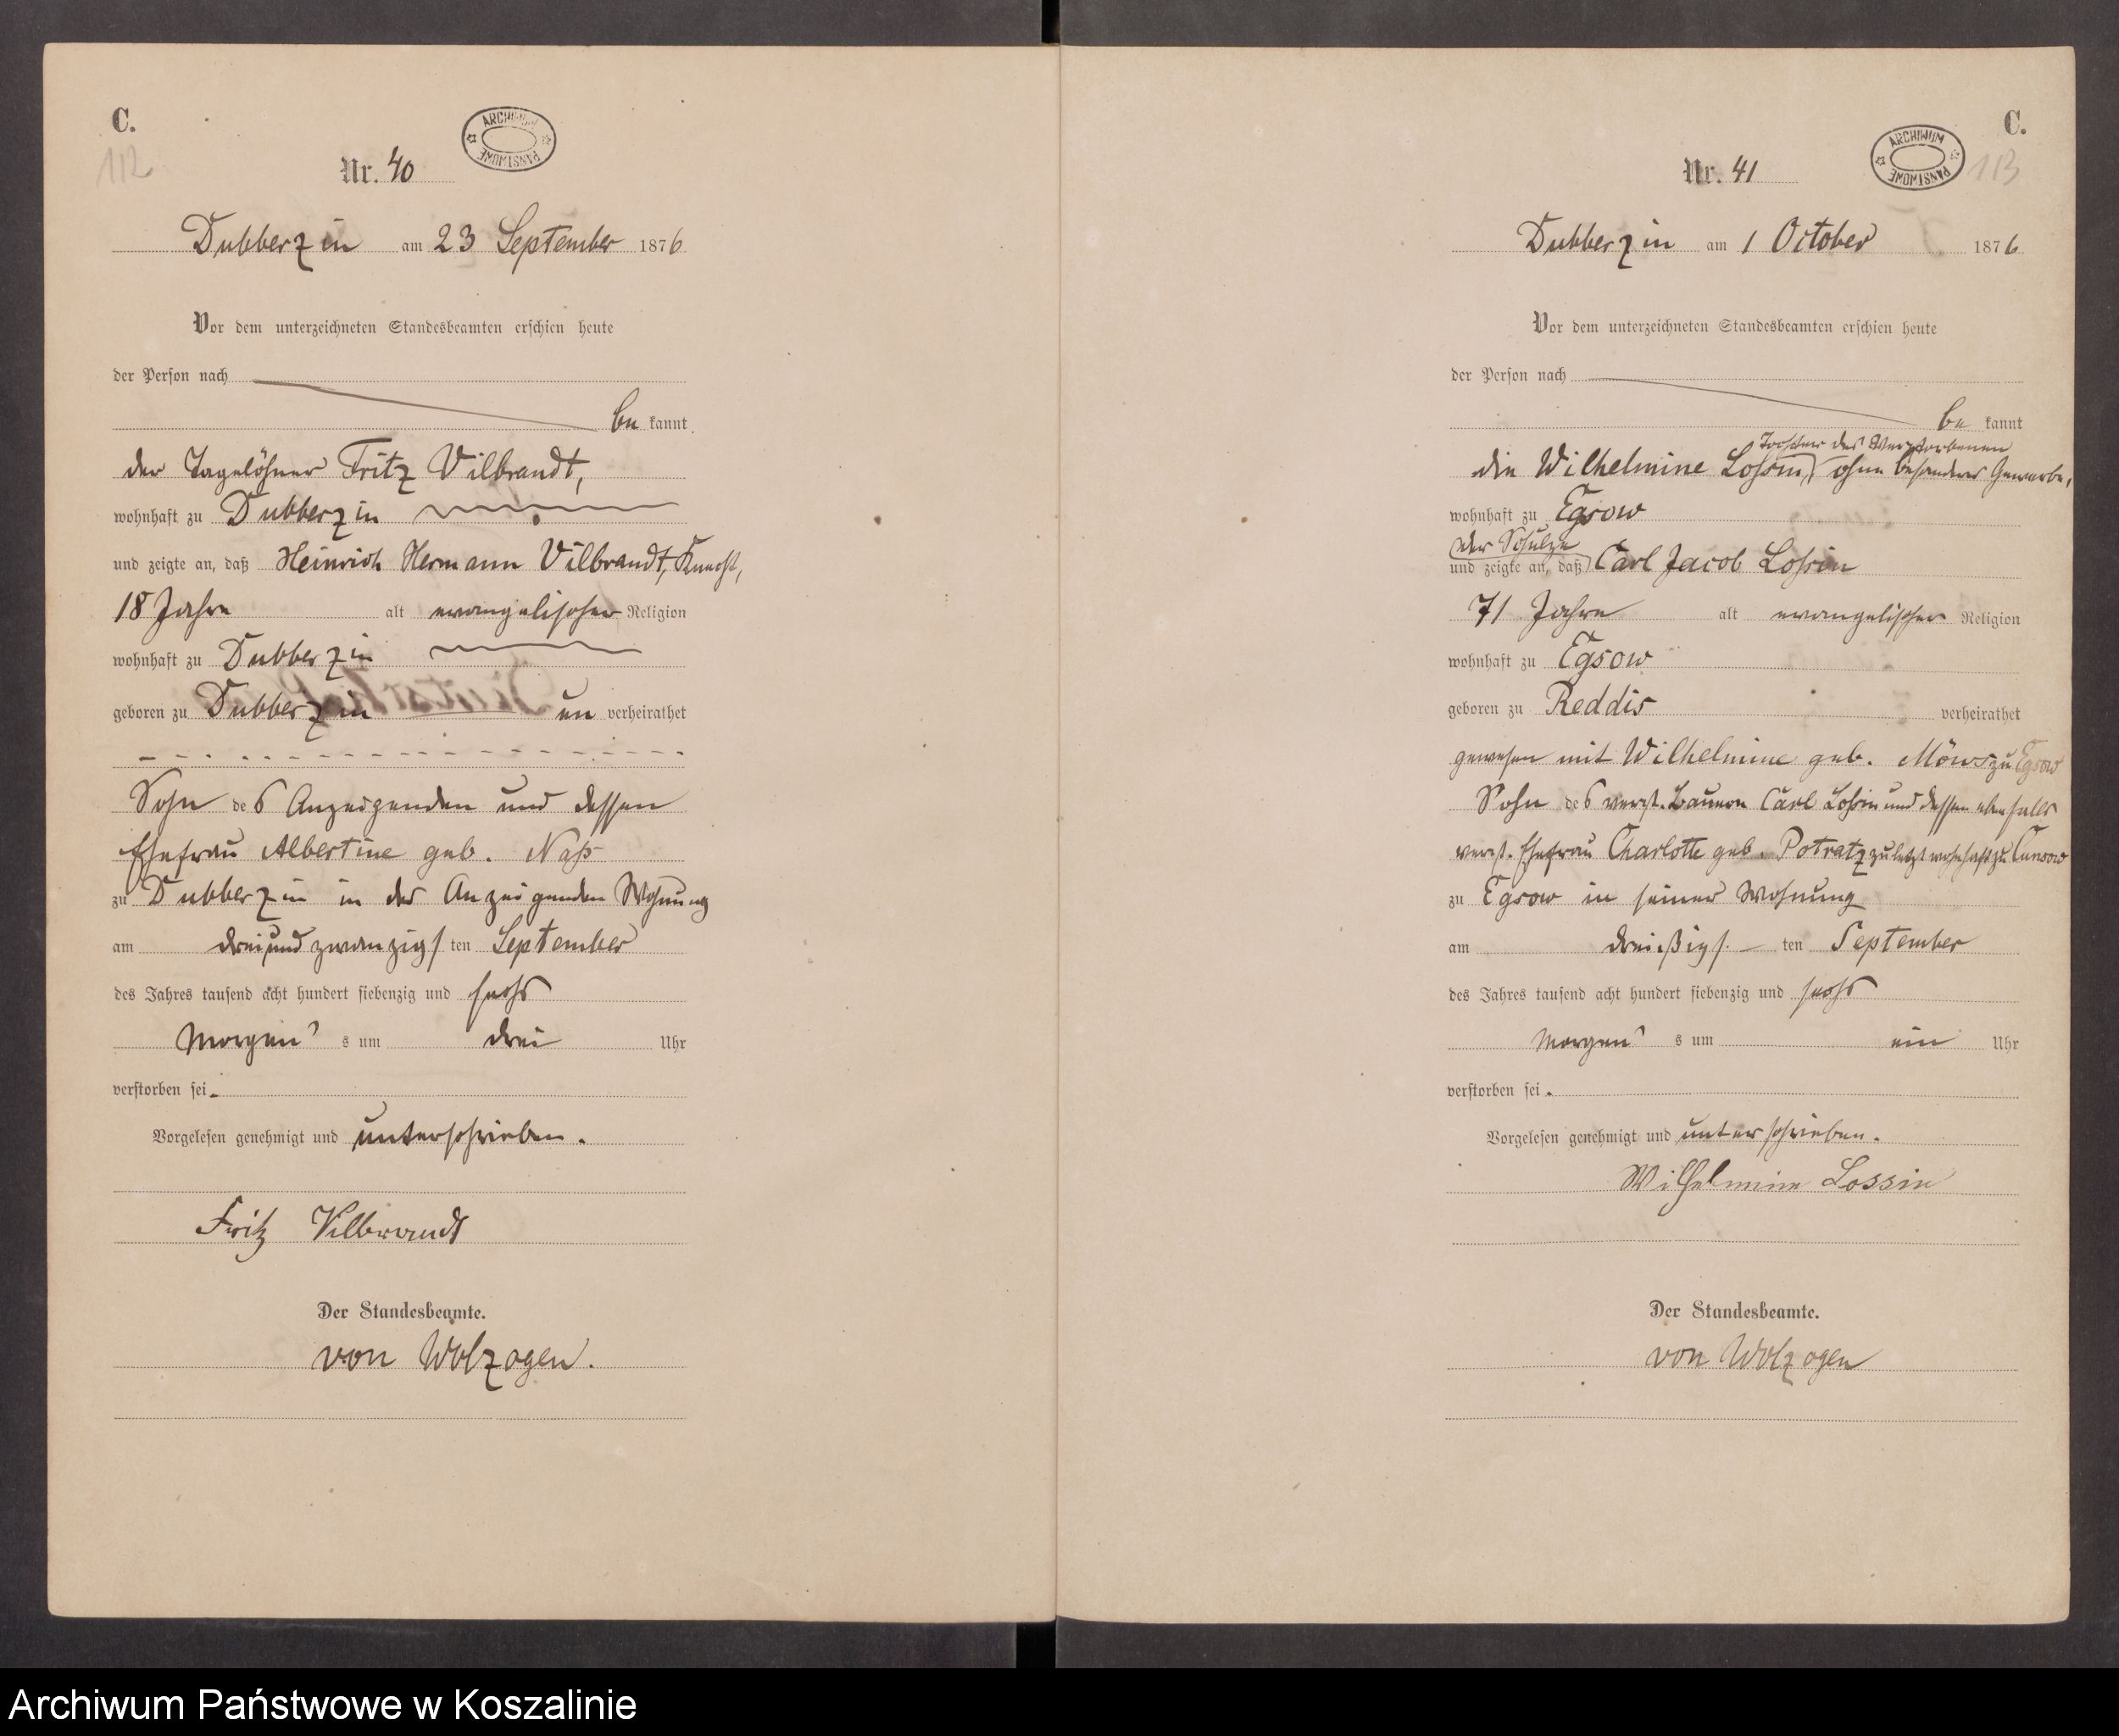 C.
112
ARCHIWUM PAŃSTWOWE
Nr. 40
Dubberzin am 23 September 1876
Vor dem unterzeichneten Standesbeamten erschien heute
der Person nach
be kannt
der Tagelöhner Fritz Vilbrandt,
wohnhaft zu Dubberzin
und zeigte an, daß Heinrich Hermann Vilbrandt, Knecht,
18 Jahre alt evangelischer Religion
wohnhaft zu Dubberzin
geboren zu Dubberzin un verheirathet
Sohn des Anzeigenden und dessen
Ehefrau Albertine geb. Naß
zu Dubberzin in des Anzeigenden Wohnung
am dreiundzwanzigsten September
des Jahres tausend acht hundert siebenzig und sechs
Morgens um drei Uhr
verstorben sei.
Vorgelesen genehmigt und unterschrieben.
Fritz Vilbrandt
Der Standesbeamte.
von Wolzogen.
C.
113
ARCHIWUM PAŃSTWOWE
Nr. 41
Dubberzin am 1 October 1876
Vor dem unterzeichneten Standesbeamten erschien heute
der Person nach
be kannt
Tochter des Verstorbenen
die Wilhelmine Lossin, ohne besonderes Gewerbe,
wohnhaft zu Egsow
der Schulze
und zeigte an, daß Carl Jacob Lossin
71 Jahre alt evangelischer Religion
wohnhaft zu Egsow
geboren zu Reddis verheirathet
gewesen mit Wilhelmine geb. Möws zu Egsow
Sohn des verst. Bauern Carl Lossin und dessen ebenfalls
verst. Ehefrau Charlotte geb. Potratz zuletzt wohnhaft zu Cunsow
zu Egsow in seiner Wohnung
am dreißigsten September
des Jahres tausend acht hundert siebenzig und sechs
Morgens um ein Uhr
verstorben sei.
Vorgelesen genehmigt und unterschrieben.
Wilhelmine Lossin
Der Standesbeamte.
von Wolzogen
Archiwum Państwowe w Koszalinie